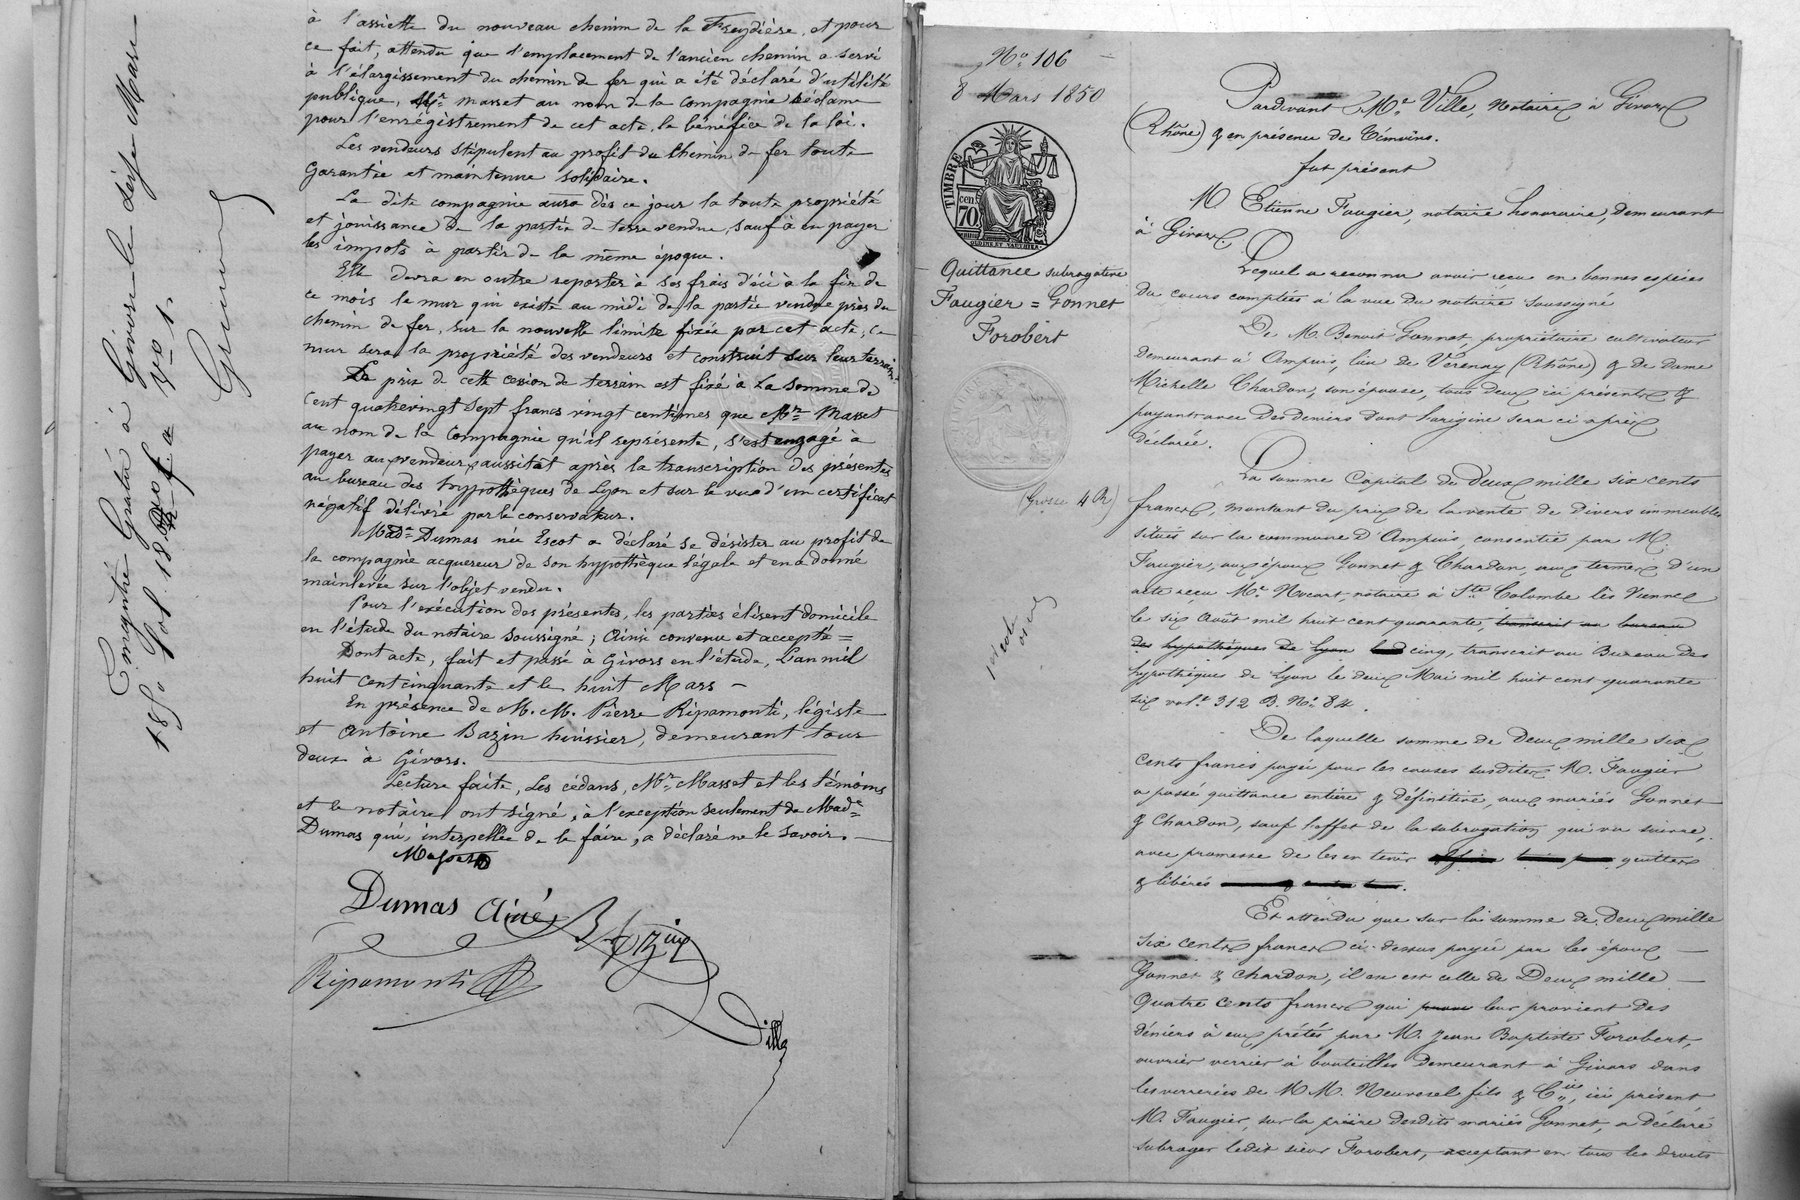 à l'assiette du nouveau chemin de la Freydière, et pour
ce fait, attendu que l'emplacement de l'ancien chemin a servi
à l'élargissement du chemin de fer qui a été déclaré d'utilité
publique, Mr. Masset au nom de la compagnie réclame
pour l'enrégistrement de cet acte, le bénéfice de la loi.
Les vendeurs stipulent au profit du Chemin de fer toute
Garantie et maintenue solidaire.
La dite compagnie aura dès ce jour la toute propriété
et jouissance de la partie de terre vendue, sauf à en payer
les impots à partir de la même époque.
Elle devra en outre reporter à ses frais d'ici à la fin de
ce mois le mur qui existe au midi de la partie vendue près du
chemin de fer, sur la nouvelle limite fixée par cet acte, ce
mur sera la propriété des vendeurs et construit sur leur terrain.
Le prix de cette cession de terrain est fixé à La somme de
Cent quatrevingt sept francs vingt centimes que Mr. Masset
au nom de la Compagnie qu'il représente, s'est engagé à
payer au vendeur aussitôt après la transcription des présentes
au bureau des hypothèques de Lyon et sur le vu d'un certificat
négatif délivré par le conservateur.
Made. Dumas née Escot a déclaré se désister au profit de
la compagnie acquereur de son hypothèque légale et en a donné
mainlevée sur l'objet vendu.
Pour l'exécution des présentes, les parties élisent domicile
en l'étude du notaire soussigné; Ainsi convenu et accepté =
Dont acte, fait et passé à Givors en l'étude, L'an mil
huit cent cinquante et le huit Mars —
En présence de M. M. Pierre Ripamonti, légiste
et Antoine Bazin huissier, demeurant tous
deux à Givors.
Lecture faite, Les cédans, Mr. Masset et les témoins
et le notaire ont signé, à l'exception seulement de Made
Dumas qui, interpellée de le faire, a déclaré ne le savoir. —
Masset
Dumas Ainé Bazin
Ripamonti
Ville
Enregistré Gratis à Givors le dix Mars
185 fol. 18
No. 106
8 Mars 1850
TIMBRE
cen.
70.
Quittance subrogative
Faugier = Gonnet
Forobert
(Grosse 4 R)
Pardevant Me. Ville, Notaire à Givors
(Rhône) & en présence de Témoins.
fut présent
M Etienne Faugier, notaire honoraire, demeurant
à Givors.
Lequel a reconnu avoir reçu en bonnes espèces
du cours comptées à la vue du notaire soussigné
De M. Benoit Gonnet, propriétaire cultivateur
demeurant à Ampuis, lieu de Verenay (Rhône) & de dame
Michelle Chardon, son épouse, tous deux ici présents &
payant avec des deniers dont l'origine sera ci après
déclarée.
La somme Capital de deux mille six cents
francs, montant du prix de la vente de divers immeubles
situés sur la commune d'Ampuis, consentie par M.
Faugier, aux époux Gonnet & Chardon, aux termes d'un
acte reçu Me. Nocart notaire à Ste Colombe lès Vienne
le six Août mil huit cent quarante, transcrit au bureau
des hypothèques de Lyon le cinq, transcrit au Bureau des
hypothèques de Lyon le deux Mai mil huit cent quarante
six vol. 312 B. No. 84.
De laquelle somme de Deux mille six
Cents francs payée pour les causes susdites M. Faugier
a passé quittance entière & définitive, aux mariés Gonnet
& Chardon, sauf l'effet de la subrogation qui va suivre,
avec promesse de les en tenir quittes
& libérés
Et attendu que sur la somme de Deux mille
six cents francs ci-dessus payée par les époux —
Gonnet & Chardon, il en est celle de Deux mille —
Quatre cents francs qui leur provient des
déniers à eux prêtés par M. Jean Baptiste Forobert,
ouvrier verrier à bouteilles demeurant à Givors dans
les verreries de M M. Neuvesel fils & Cie, ici présent
M. Faugier, sur la prière desdits mariés Gonnet, a déclaré
subroger ledit sieur Forobert, acceptant en tous les droits